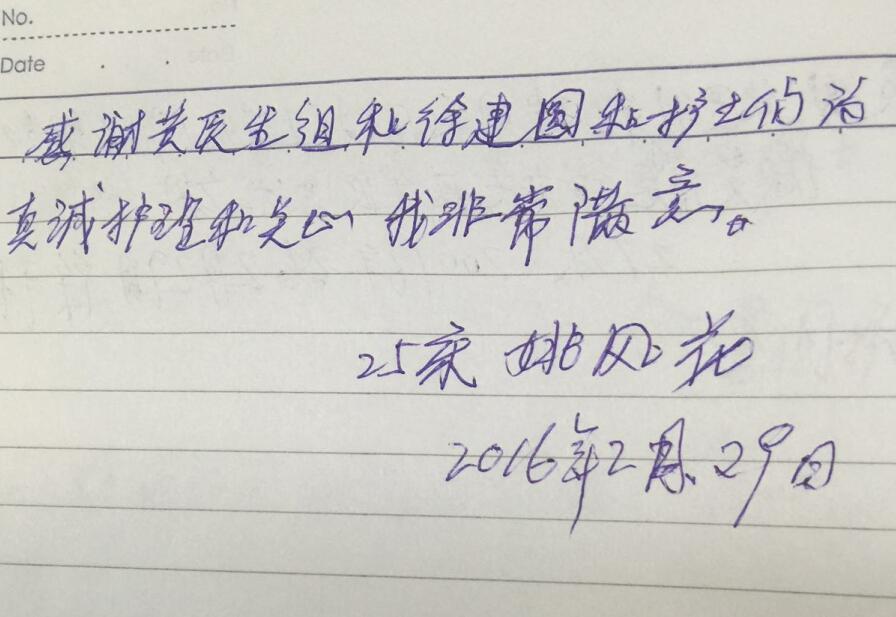 No.
Date
感谢黄医生组和徐建国和护士们的
真诚护理和关心 我非常满意。
25床 姚凤花
2016年2月29日